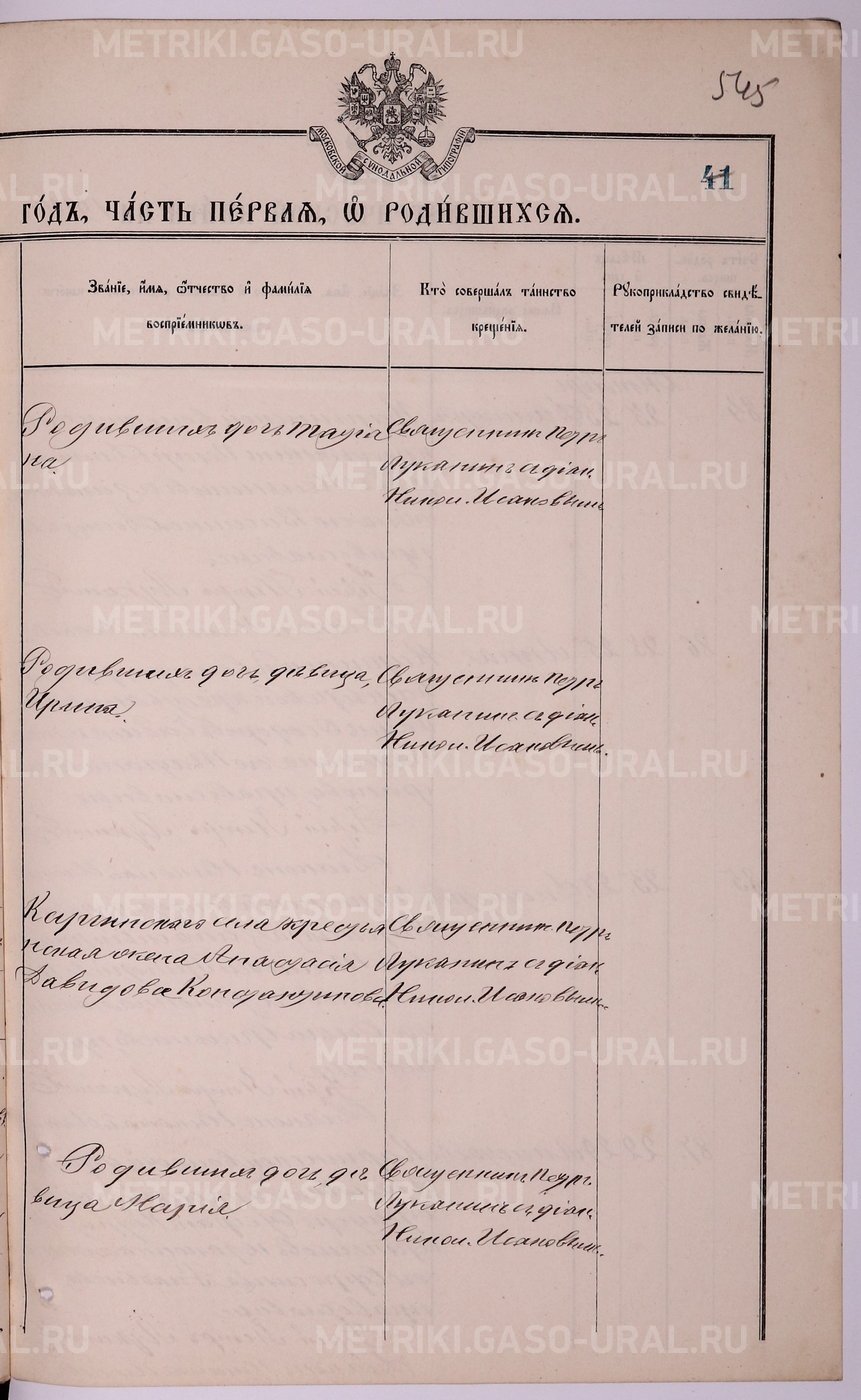 METRIKI.GASO-URAL.RU
545
МОСКОВСКОЙ СѴНОДАЛЬНОЙ ТИПОГРАФІИ
41
го́дъ, ча́сть пе́рваѧ, ѡ҆ роди́вшихсѧ.
Зва́нїе, и҆́мѧ, ѻ҆́тчество и҆ фами́лїѧ
воспрїе́мникѡвъ.
Кто̀ соверша́лъ та́инство
креще́нїѧ.
Рꙋкоприкла́дство свидѣ́-
телей за́писи по жела́нїю.
Родившихъ дочь Татіа
на.
Священникъ Петръ
Луканинъ съ діак.
Никол. Исаковымъ
Родившихъ дочь, девица,
Ирина.
Священникъ Петръ
Луканинъ съ діак.
Никол. Исаковымъ.
села крестья
нская жена Анастасія
Давидова Константинова
Священникъ Петръ
Луканинъ съ діак.
Никол. Исаковымъ.
Родившихъ дочь, де
вица Марія.
Священникъ Петръ
Луканинъ съ діак.
Никол. Исаковымъ.